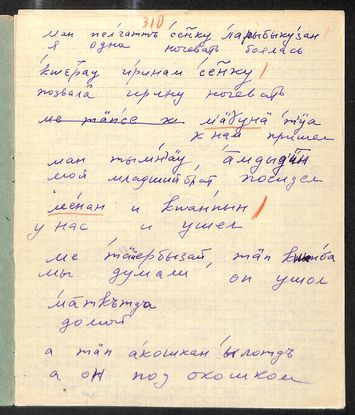 310
ман пелгаттъ се̄н̄ку ларыбыкузан
я одна ночевать боялась
квтерау иринам се̄н̄ку
позвала ирину ночевать
ме тап'се ж мадуна туа
к нам пришел
ман тымн'ау амдыдин
мой младший брат посидел
ме́нан и квтаннын
у нас и ушел
ме тайербызай, тап
мы думали он ушол
маткътда
домой
а тап акошкан ылотдъ
а он под окошком